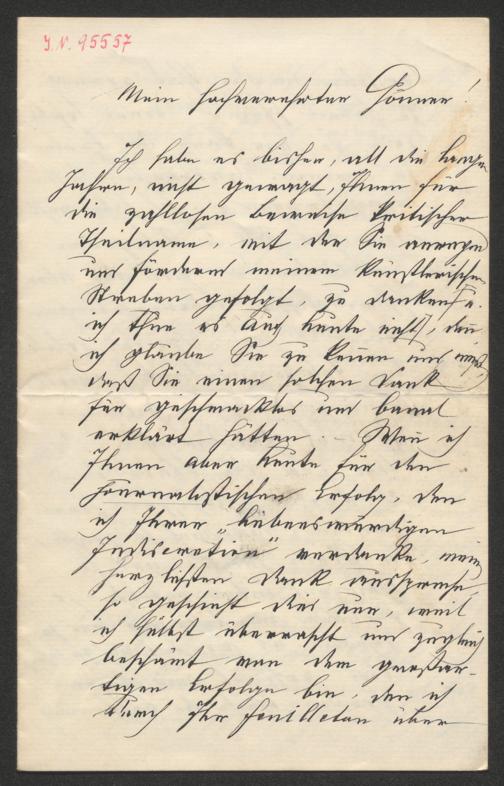 J. N. 95557
Mein hochverehrter Gönner!
Ich habe es bisher, all die langen
Jahre, nicht gewagt, Ihnen für
die zahllosen Beweise kritischer
Theilname, mit der Sie anregend
und fördernd meinem künstlerischen
Streben gefolgt, zu danken u.
ich thue es auch heute nicht, denn
ich glaube Sie zu kennen und weiß,
daß Sie einen solchen Dank
für geschmacklos und banal
erklärt hätten. – Wenn ich
Ihnen aber heute für den
journalistischen Erfolg, den
ich Ihrer „liebenswürdigen
Indiscretion" verdanke, meinen
herzlichsten Dank ausspreche,
so geschieht dies nur, weil
ich selbst überrascht und zugleich
beschämt von dem großar-
tigen Erfolge bin, den ich
durch Ihr Feuilleton über